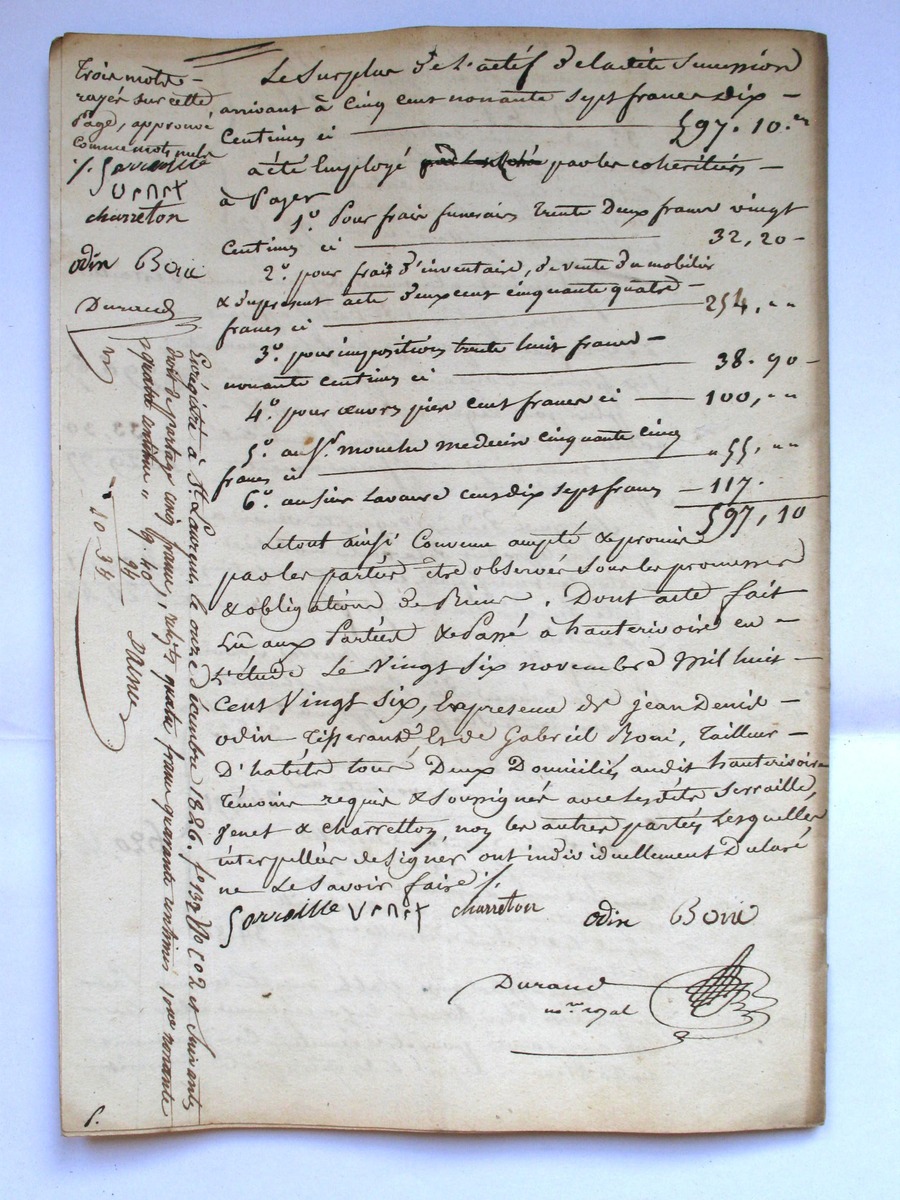 Trois mots
rayés sur cette
Page, approuvé
comme mots nuls
Serraille
venet
charreton
odin Boué
Durand
Le Surplus de L'actif de ladite Succession
arrivant à Cinq cent nonante sept francs dix
Centimes ci 597. 10.es
a été Employé par les cohéritiers
à Payer
1.o Pour frais funeraires trente Deux francs vingt
Centimes ci 32,20
2.o pour frais d'inventaire, de vente du mobilier
& du present acte deux cent cinquante quatre
francs ci 254, ''
3.o pour impositions trente huit francs
nonante centimes ci 38. 90
4.o pour œuvres pies cent francs ci 100, ''
5.o au Sr. mouchu medecin Cinquante Cinq
francs ci 55, ''
6.o au sieur Lavaure cent dix sept francs 117.
597, 10
Le tout ainsi Convenu accepté & promis
par les parties être observés Sous les promesses
& obligations de Biens. Dont acte fait
Lû aux Parties & Passé à hauterivoire en
L'étude Le Vingt Six novembre Mil huit
Cent Vingt Six, En presence de jean Denis
odin Tisserand Et de Gabriel Boué, Tailleur
D'habits tous Deux Domiciliés audit hauterivoire
Témoins requis & Soussignés avec Lesdits Serraille,
Venet & charretton, non les autres parties Lesquelles
interpellées de Signer ont individuellement Declaré
ne Le Savoir faire
Serraille venet charreton odin Boué
Durand
nore royal
Enregistré à St. Laurent le onze décembre 1826. fo 132 Vo Co 2 et Suivants
droit de partage cinq francs, quatre francs quarante centimes, nonante
quatre centimes
9. 40
94
10 34